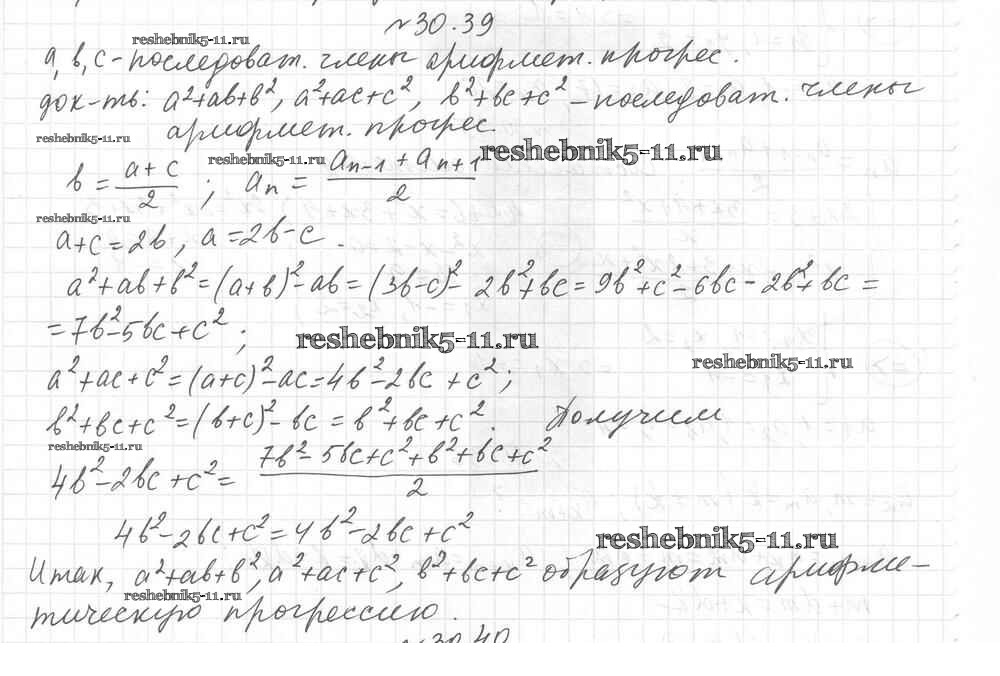 №30.39
reshebnik5-11.ru
a, b, c - последоват. члены арифмет. прогрес.
док-ть: a²+ab+b², a²+ac+c², b²+bc+c² - последоват. члены
reshebnik5-11.ru
арифмет. прогрес.
reshebnik5-11.ru
reshebnik5-11.ru
b = (a+c)/2 ; aₙ = (aₙ₋₁ + aₙ₊₁)/2
reshebnik5-11.ru
a+c=2b, a=2b-c.
a²+ab+b²=(a+b)²-ab=(3b-c)²- 2b²+bc=9b²+c²-6bc-2b²+bc=
=7b²-5bc+c²;
reshebnik5-11.ru
reshebnik5-11.ru
a²+ac+c²=(a+c)²-ac=4b²-2bc+c²;
b²+bc+c²=(b+c)²-bc=b²+bc+c². Получим
reshebnik5-11.ru
4b²-2bc+c²= (7b²-5bc+c²+b²+bc+c²)/2
4b²-2bc+c²=4b²-2bc+c²
reshebnik5-11.ru
Итак, a²+ab+b², a²+ac+c², b²+bc+c² образуют арифме-
reshebnik5-11.ru
тическую прогрессию.
№30.40